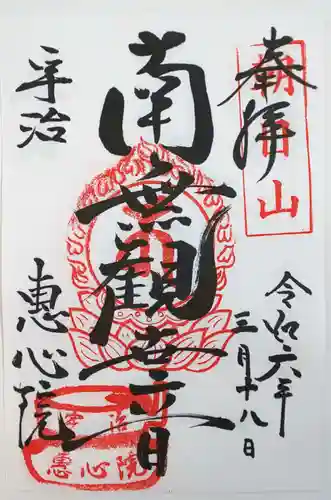 奉拝
朝日山
令和六年
三月十八日
南無観世音
宇治
恵心院
恵心院